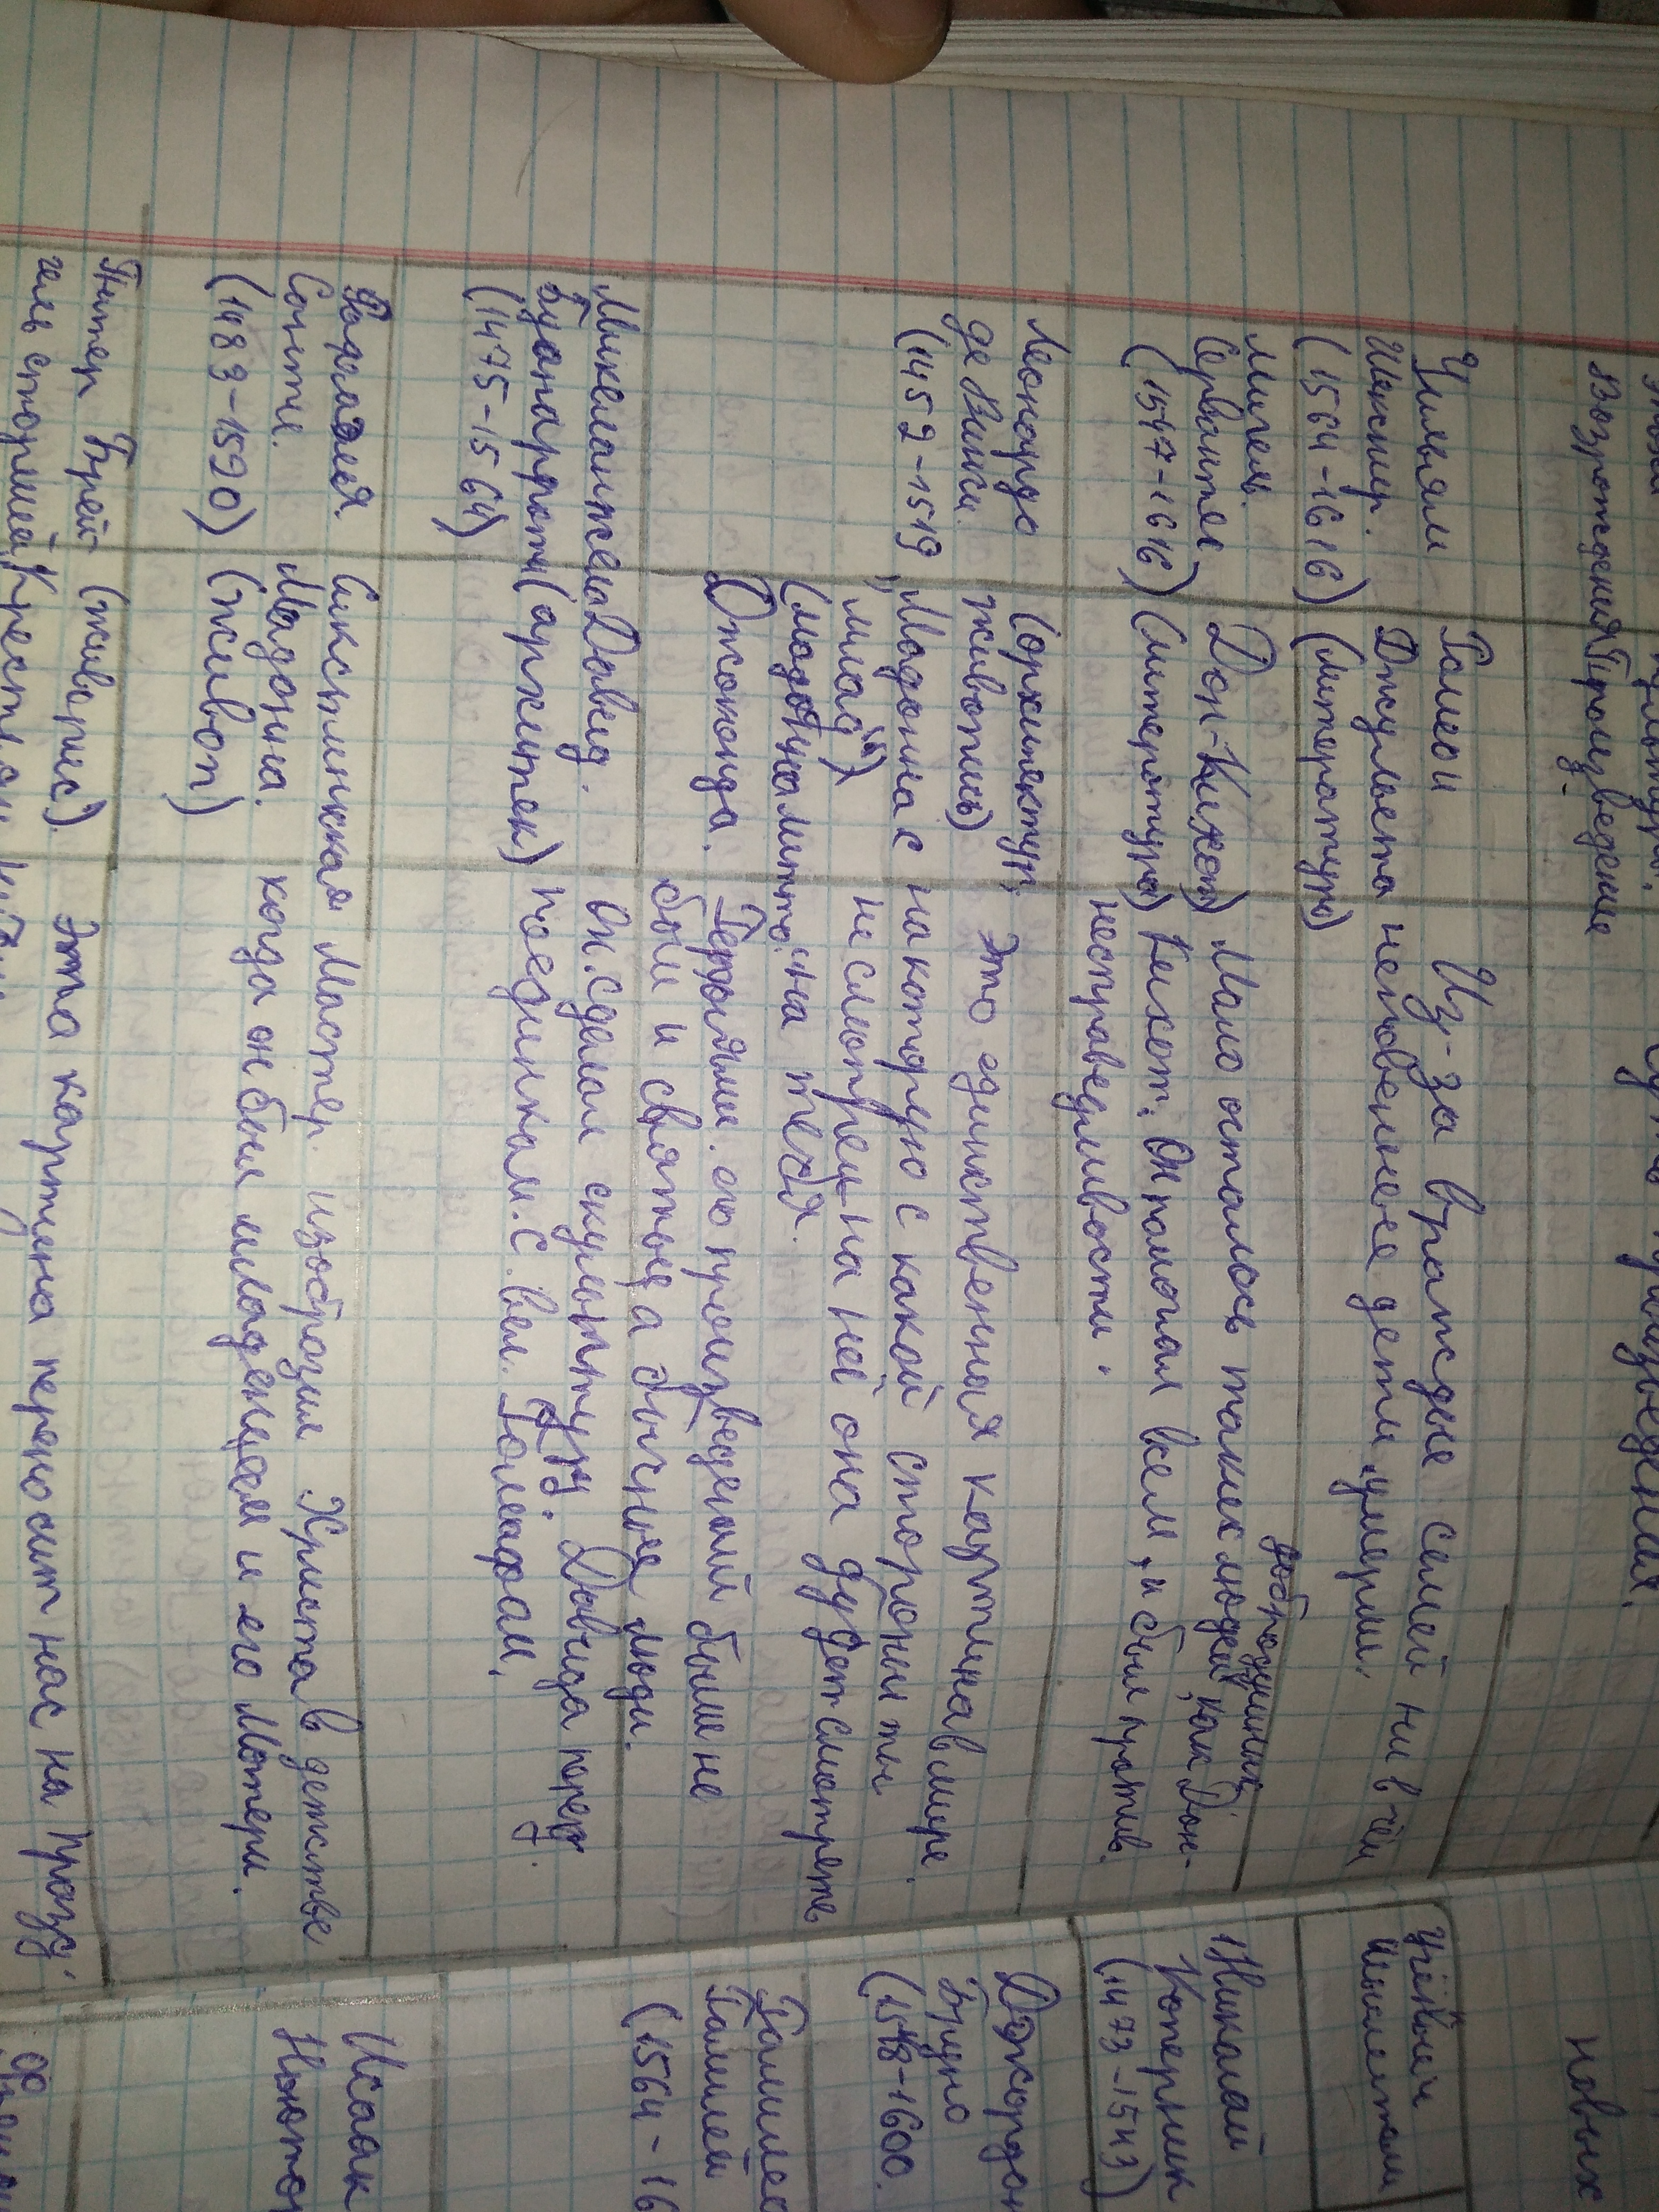 Возрождения Произведение
произведения.
Уильям
Шекспир.
(1564-1616)
Ромео и
Джульета
(литература)
Из-за вражды семей ни в чём
неповенные дети умерли.
Мигель
Сервантес
(1547-1616)
Дон-Кихот
(литература)
добродушных
Мало осталось таких людей, как Дон-
Кихот. Он помогал всем, и был против
несправедливости.
Леонардо
де Винчи.
(1452-1519
(архитектур,
живопись)
"Мадонна с
млад"
Джоконда.
Это единственная картина в мире.
на которую с какой стороны ты
не смотрел на неё она будет смотреть
на тебя.
Героями его произведений были не
боги и святые, а обычные люди.
Микеланжело
Буанарроти
(1475-1564)
Давид.
(архитек)
Он сделал скульптуру Давида перед
поединком с вел. Голиафам.
Рафаэля
Санте.
(1483-1520)
Сикстинская
Мадонна.
(живоп)
Мастер изобразил Христа в детстве
когда он был младенцем и его Матери.
Питер Брей-
гель старший
(живопис).
Эта картина переносит нас на празд.
новых
Учёный
Николай
Коперник
(1473-1543)
Джордан
Бруно
(1548-1600.
Галилео
Галилей
(1564-16
Исаак
Ньютон